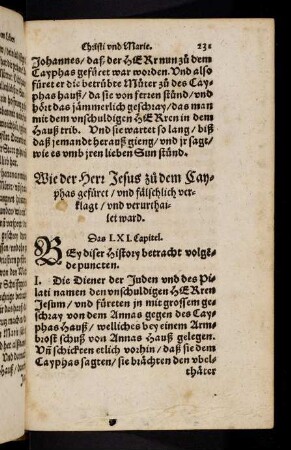 Christi vnd Marie. 231
Johannes/ daß der HERR nun zů dem
Cayphas gefüret war worden. Vnd also
füret er die betrübte Můter zů des Cay-
phas hauß/ da sie von ferren stůnd/ vnd
hört das jämmerlich geschray/ das man
mit dem vnschuldigen HERren in dem
Hauß trib. Vnd sie wartet so lang/ biß
daß jemandt herauß gieng/ vnd jr sagt/
wie es vmb jren lieben Sun stůnd.
Wie der Herr Jesus zů dem Cay-
phas gefüret/ vnd fälschlich ver-
klagt/ vnd verurthai-
let ward.
Das LXI. Capitel.
BEy diser History betracht volgẽ-
de puncten.
I. Die Diener der Juden vnd des Pi-
lati namen den vnschuldigen HERren
Jesum/ vnd fůreten jn mit grossem ge-
schray von dem Annas gegen des Cay-
phas Hauß/ welliches bey einem Arm-
brost schuß von Annas Hauß gelegen.
Vñ schickten etlich vorhin/ daß sie dem
Cayphas sagten/ sie brächten den vbel-
thäter